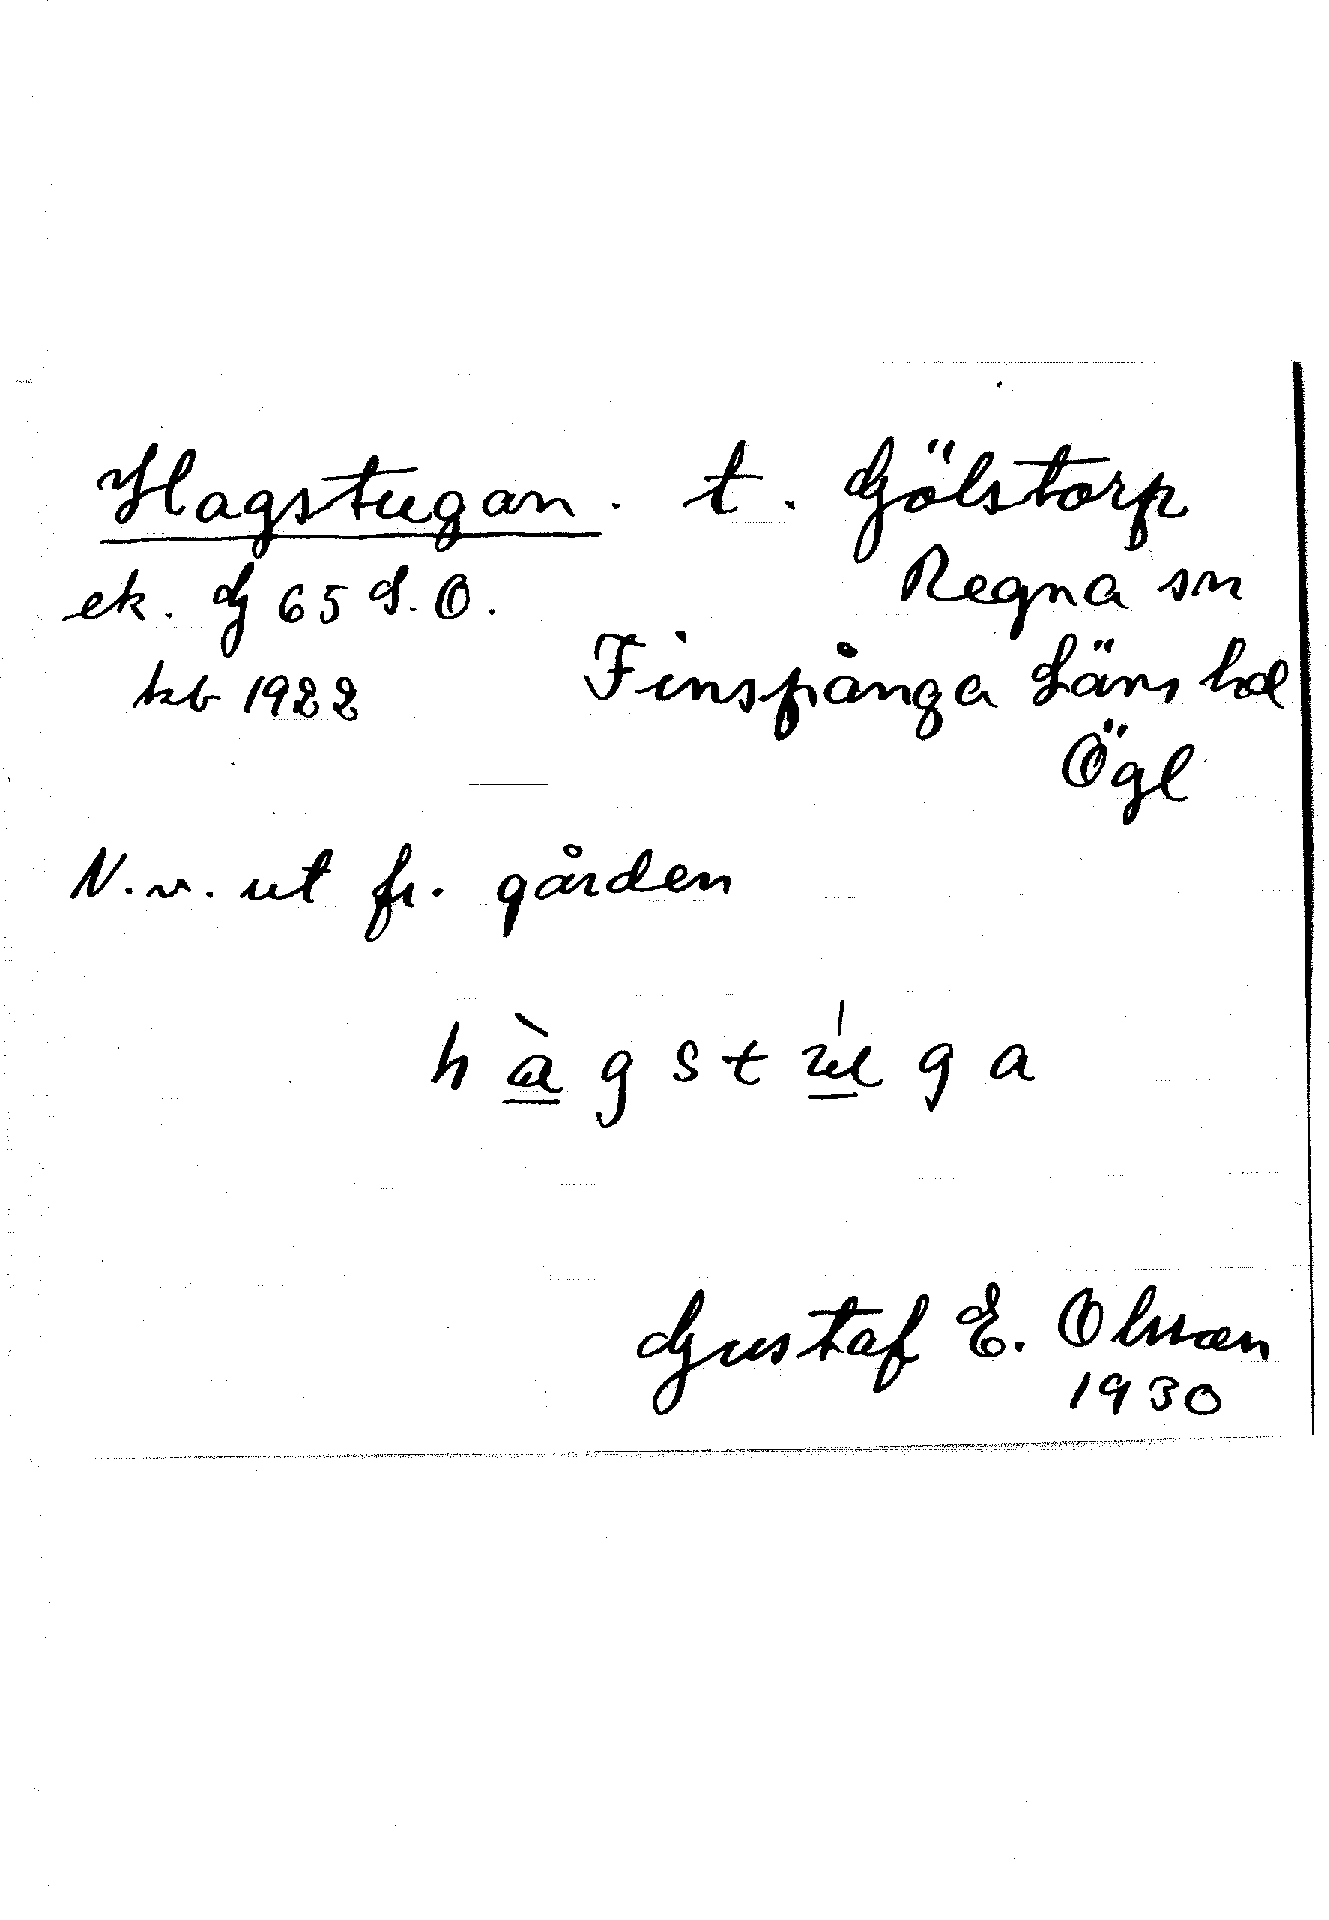 Hagstugan. t. Gölstorp
ek. G 65 S. O. Regna sn
kb 1922 Finspånga Läns hd
Ögl
N. v. ut fr. gården
hàgstúga
Gustaf E. Olsson
1930